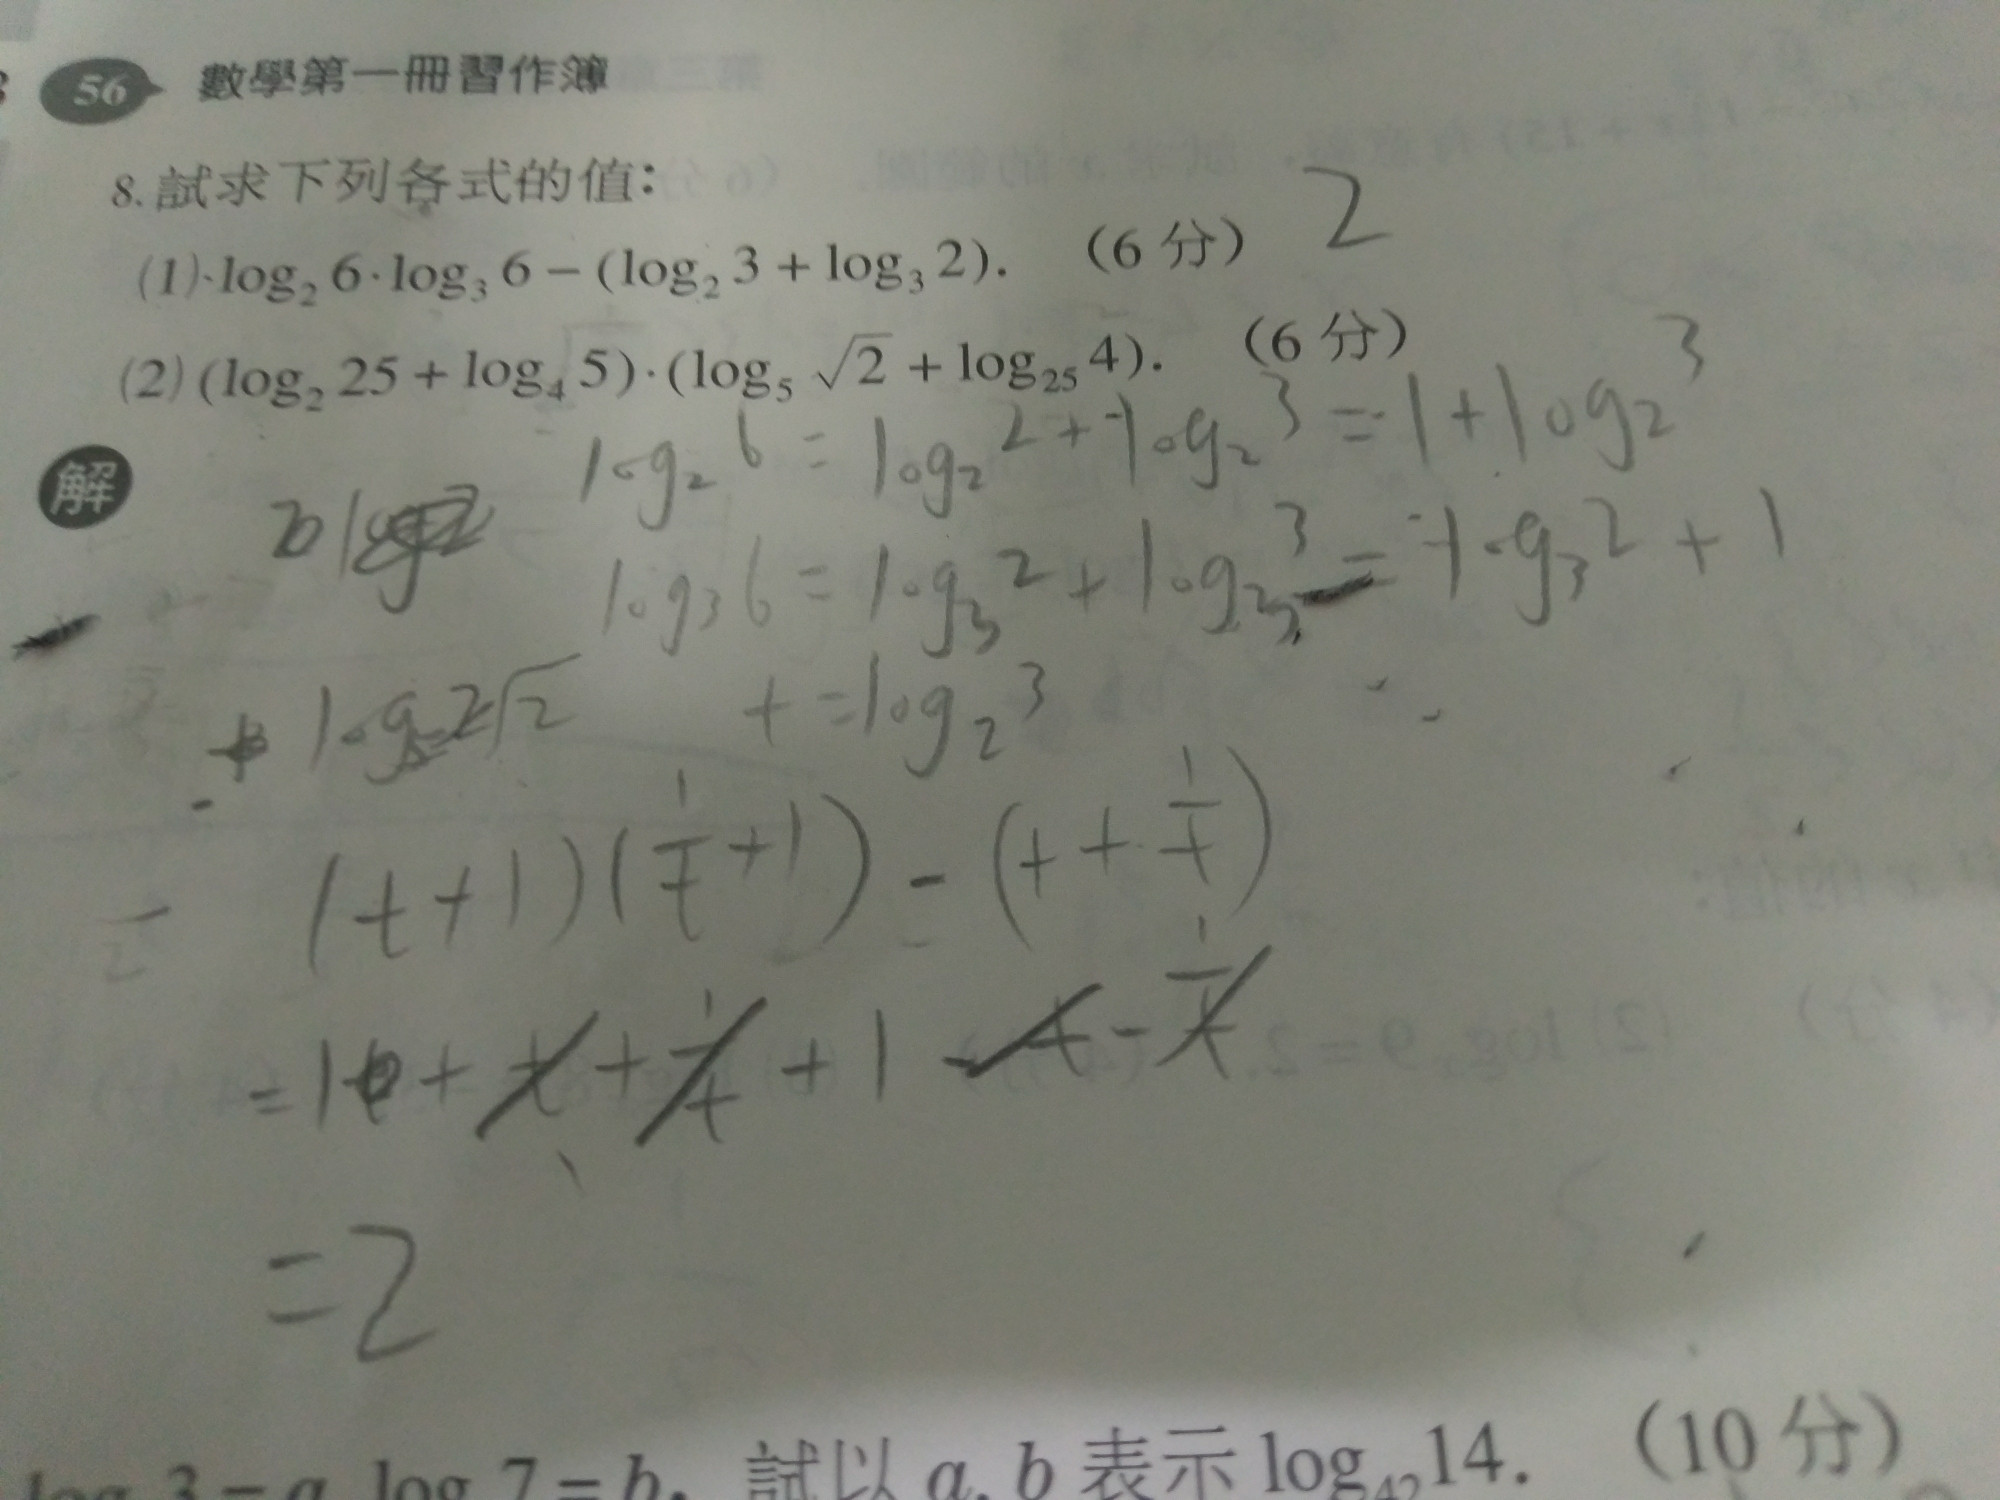 56 數學第一冊習作簿
8. 試求下列各式的值：
(1) log₂ 6 · log₃ 6 − (log₂ 3 + log₃ 2). (6 分) 2
(2) (log₂ 25 + log₄ 5) · (log₅ √2 + log₂₅ 4). (6 分)
解
log₂ 6 = log₂ 2 + log₂ 3 = 1 + log₂ 3
log₃ 6 = log₃ 2 + log₃ 3 = log₃ 2 + 1
t = log₂ 3
(t + 1)(1/t + 1) − (t + 1/t)
= 1 + t + 1/t + 1 − t − 1/t
= 2
3 = a, log 7 = b, 試以 a, b 表示 log₄₂ 14. (10 分)